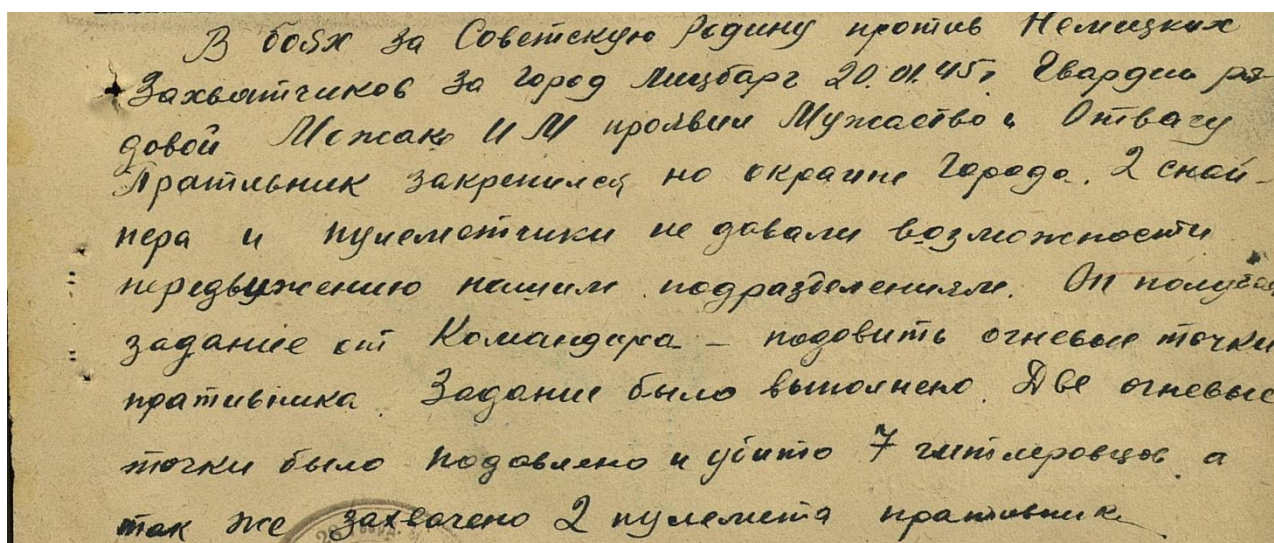 В боях за Советскую Родину против Немецких
Захватчиков за город Лицбарг 20.01.45г Гвардии ря-
довой Можак И М проявил Мужаство и Отвагу
Пративник закрепился на окраине Города. 2 снай-
пера и пулеметчики не давали возможности
передвужению нашим подразделениям. Он получил
задание от Командира - подовить огневые точки
пративника. Задание было выполнено. Две огневые
точки было подовлено и убито 7 гитлеровцов а
так же захвачено 2 пулемета пративник